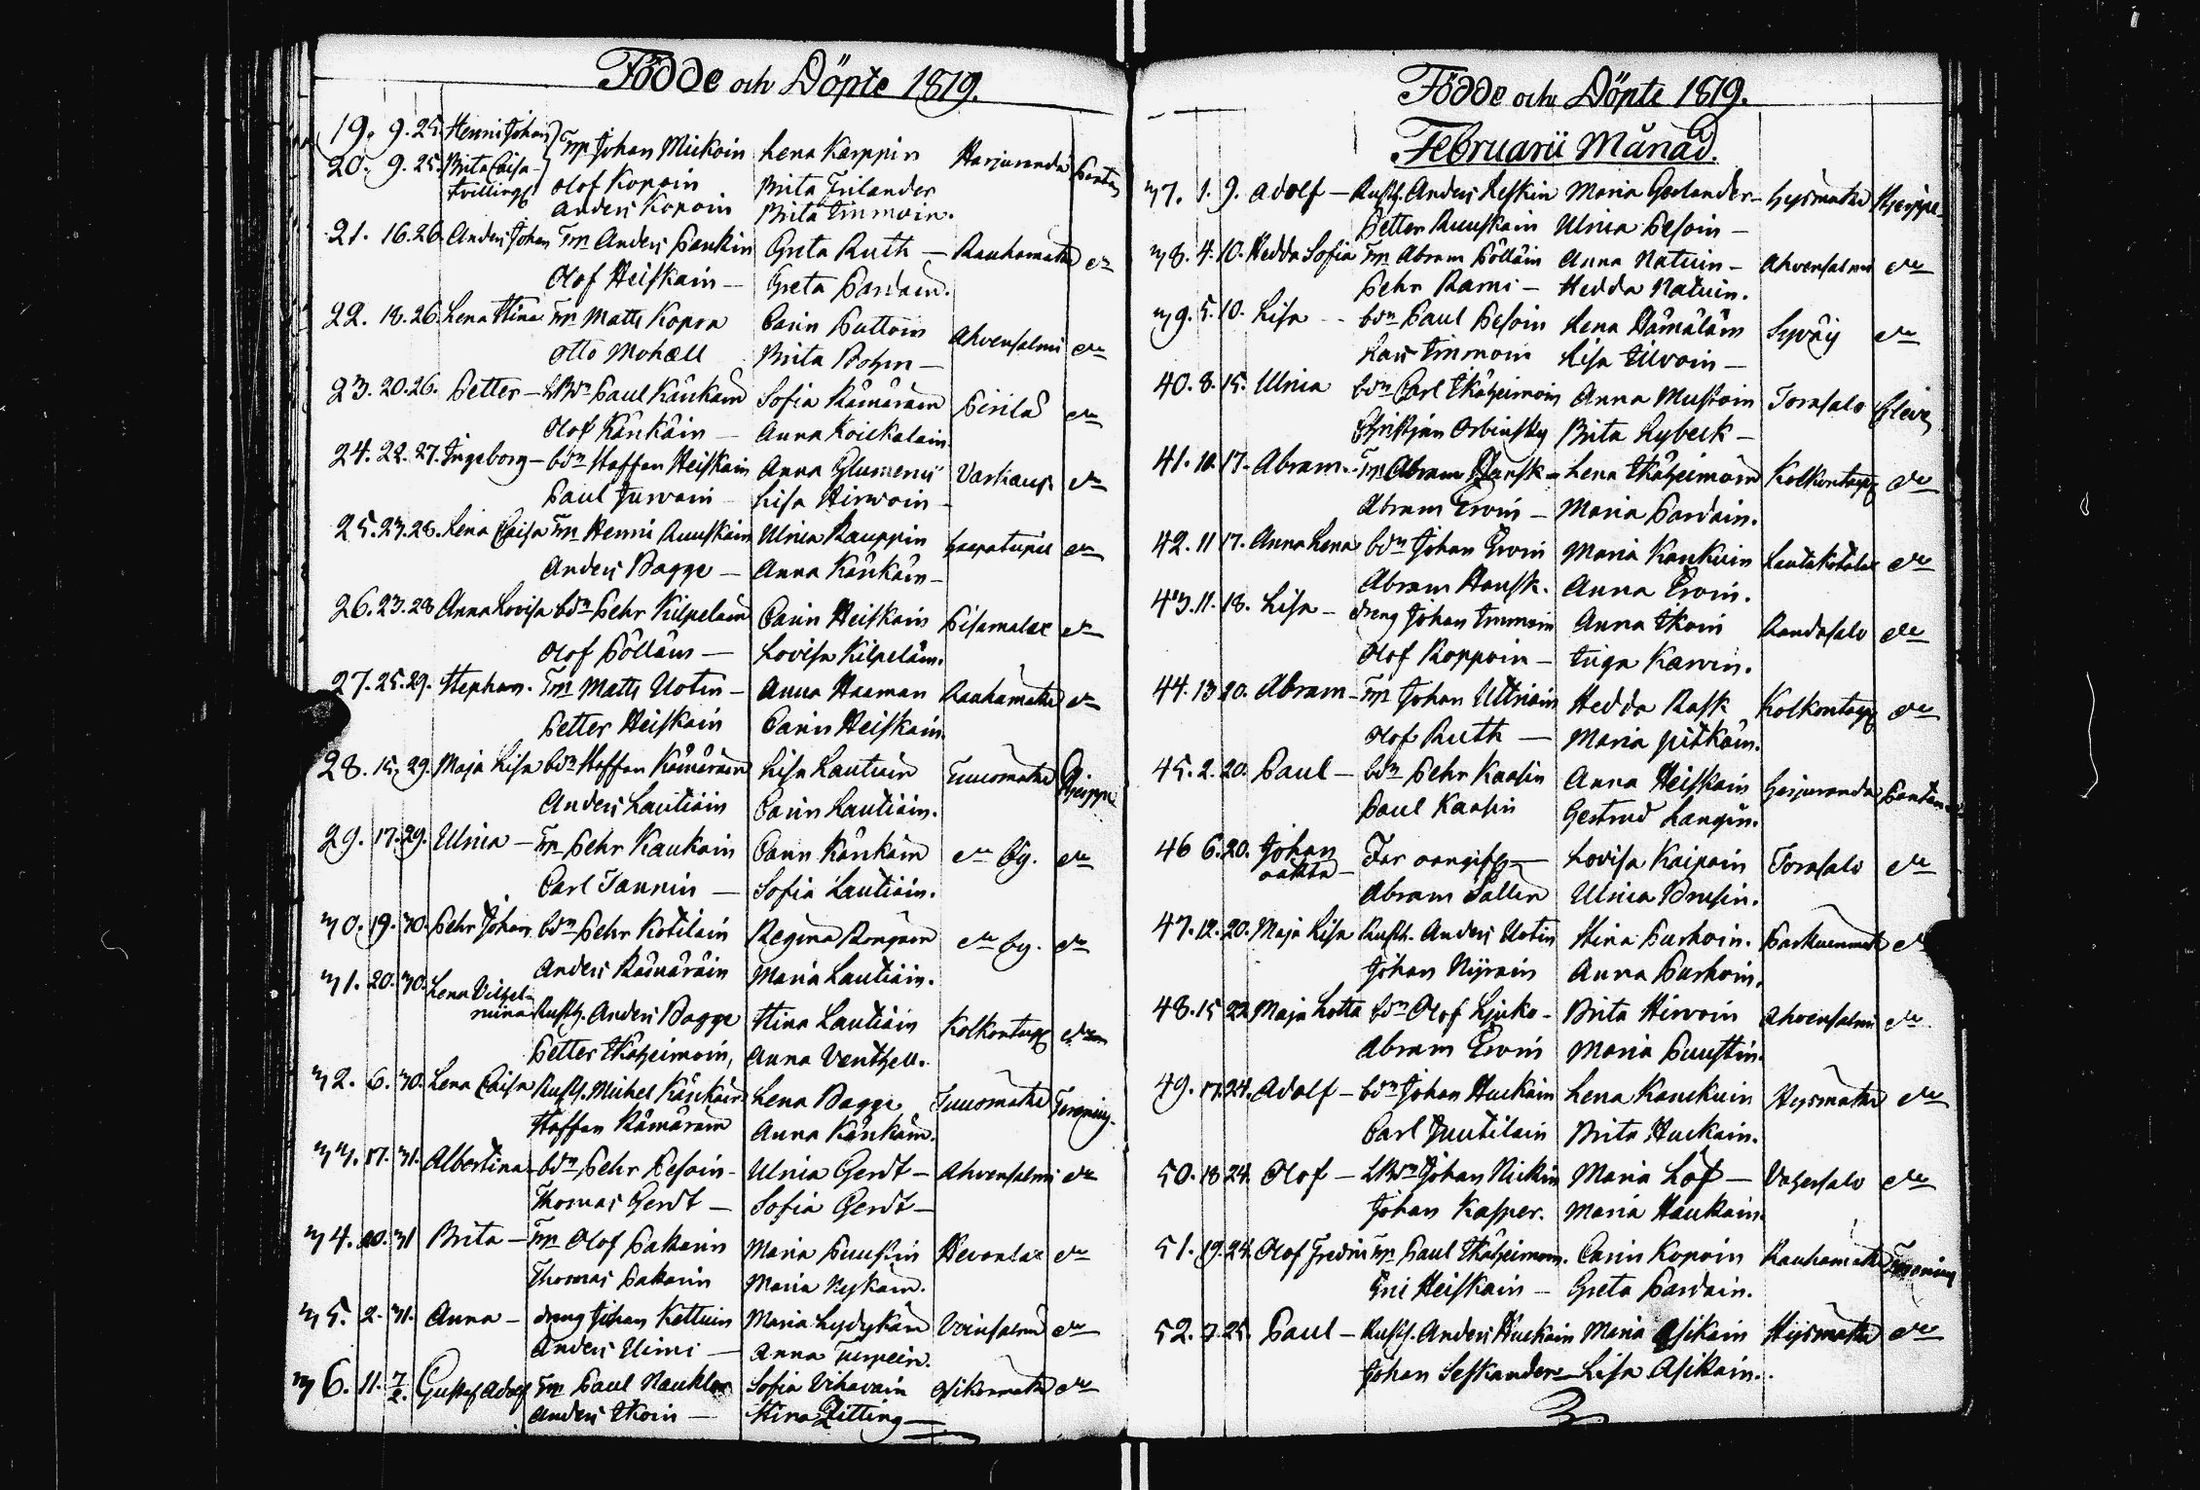 Födde och Döpte 1819.
19. 9. 25. Henric Johan
Tp Johan Mickoin Lena Karppin Harjuranda
20. 9. 25. Brita Caisa
tvillingr Olof Kopoin Brita Frilander
Anders Kopoin Brita Immoin.
21. 16. 26. Anders Johan Tp Anders Pankin Greta Ruth — Rauhamäki do
Olof Heiskain — Greta Pardain.
22. 18. 26. Lena Stina Tp Matts Kopra Carin Puttoin Ahvensalmi do
Otto Mohell Brita Bohm —
23. 20. 26. Petter — Paul Känkäin Sofia Rämäräin do
Olof Känkäin — Anna Koickalain
24. 22. 27. Ingeborg — bdn Staffan Heiskain Anna Glumerus Varkaus do
Paul Turvain Lisa Hirvoin —
25. 23. 28. Lena Caisa Tp Henric Ruuskain Ulrica Kauppin do
Anders Bagge — Anna Känkäin —
26. 23. 28 Anna Lovisa bdn Pehr Kilpeläin Carin Heiskain Pisamalax do
Olof Pölläin — Lovisa Kilpeläin.
27. 25. 29. Stephan. Tp Matts Uotin — Anna Haaman Rauhamäki do
Petter Heiskain Carin Heiskain.
28. 15. 29. Maja Lisa bdn Staffan Rämäräin Lisa Lautiain Tuusmäki
Anders Lautiäin Carin Lautiäin.
29. 17. 29. Ulrica — Tp Pehr Kaukain Carin Känkäin do by. do
Carl Tannin — Sofia Lautiäin.
30. 19. 30. Pehr Johan bdn Pehr Kotilain Regina Rongain do by. do
Anders Rämäräin Maria Lautiäin.
31. 20. 30. Lena Vilhel-
mina Rusth. Anders Bagge Stina Lautiäin Kolkontaip do
Petter Ikäheimoin, Anna Venthell.
32. 6. 30. Lena Caisa Rusth. Michel Känkäin Lena Bagge Tuusmäki
Staffan Rämäräin Anna Känkäin.
33. 17. 31. Albertina bdn Pehr Pesoin — Ulrica Gerdt — Ahvensalmi do
Thomas Gerdt — Sofia Gerdt —
34. 20. 31 Brita — Tp Olof Pakarin Maria Puustin Hevonlax do
Thomas Pakarin Maria Nykäin.
35. 2. 31. Anna — dreng Johan Kettuin Maria Lydykäin do
Anders Uimi — Anna Turpein.
36. 11. 7/2. Gustaf Adolf Tp Paul Naukler Sofia Vihavain Asikonmäki do
Anders Ikoin — Stina Zitting —
Födde och Döpte 1819.
Februarii Månad.
37. 1. 9. Adolf — Rusth. Anders Leskin Maria Goolander —
Petter Ruuskain Ulrica Pesoin —
38. 4. 10. Hedda Sofia Tp Abram Pölläin Anna Natuin — Ahvensalmi do
Pehr Rami — Hedda Natuin.
39. 5. 10. Lisa — bdn Paul Pesoin Lena Hämäläin Syväij do
Lars Immoin Lisa Turvoin —
40. 8. 15. Ulrica bdn Carl Ikäheimoin Anna Mustoin Torasalo
Christjan Orbinsky Brita Nybeck —
41. 10. 17. Abram. Tp Abram Hansk — Lena Ikäheimoin Kolkontaip do
Abram Ervin — Maria Pardain.
42. 11 17. Anna Lena bdn Johan Ervin Maria Kankuin Lautakotalax do
Abram Hansk. Anna Ervin.
43. 11. 18. Lisa — dreng Johan Immoin Anna Ikoin Randasalo do
Olof Roppoin — Inga Karvin.
44. 13 20. Abram — Tp Johan Ulriain Hedda Rask Kolkontaip do
Olof Ruth — Maria Pitkäin.
45. 2. 20. Paul — bdn Pehr Kaasin Anna Heiskain Harjuranda
Paul Kaasin Gertrud Langin.
46 6. 20. Johan
oäkta — Far oangifven Lovisa Kaipain Torasalo do
Abram Sallin Ulrica Brusin.
47. 12. 20. Maja Lisa Rusth. Anders Uotin Stina Purhoin. do
Johan Nyrain Anna Purhoin.
48. 15 22. Maja Lotta bdn Olof Ljuko — Brita Hirvoin Ahvensalmi do
Abram Ervin Maria Puustin.
49. 17. 24. Adolf — bdn Johan Huckain Lena Kauckuin do
Carl Juutilain Brita Huckain.
50. 18 24. Olof — Johan Nickin Maria Löf — Vahersalo do
Johan Kasper. Maria Haukain.
51. 19. 24. Olof Fredric Tp Paul Ikäheimoin. Carin Kopoin Rauhamäki
Eric Heiskain — Greta Pardain.
52. 7. 25. Paul — Rusth. Anders Huckain Maria Asikain do
Johan Seskander — Lisa Asikain.